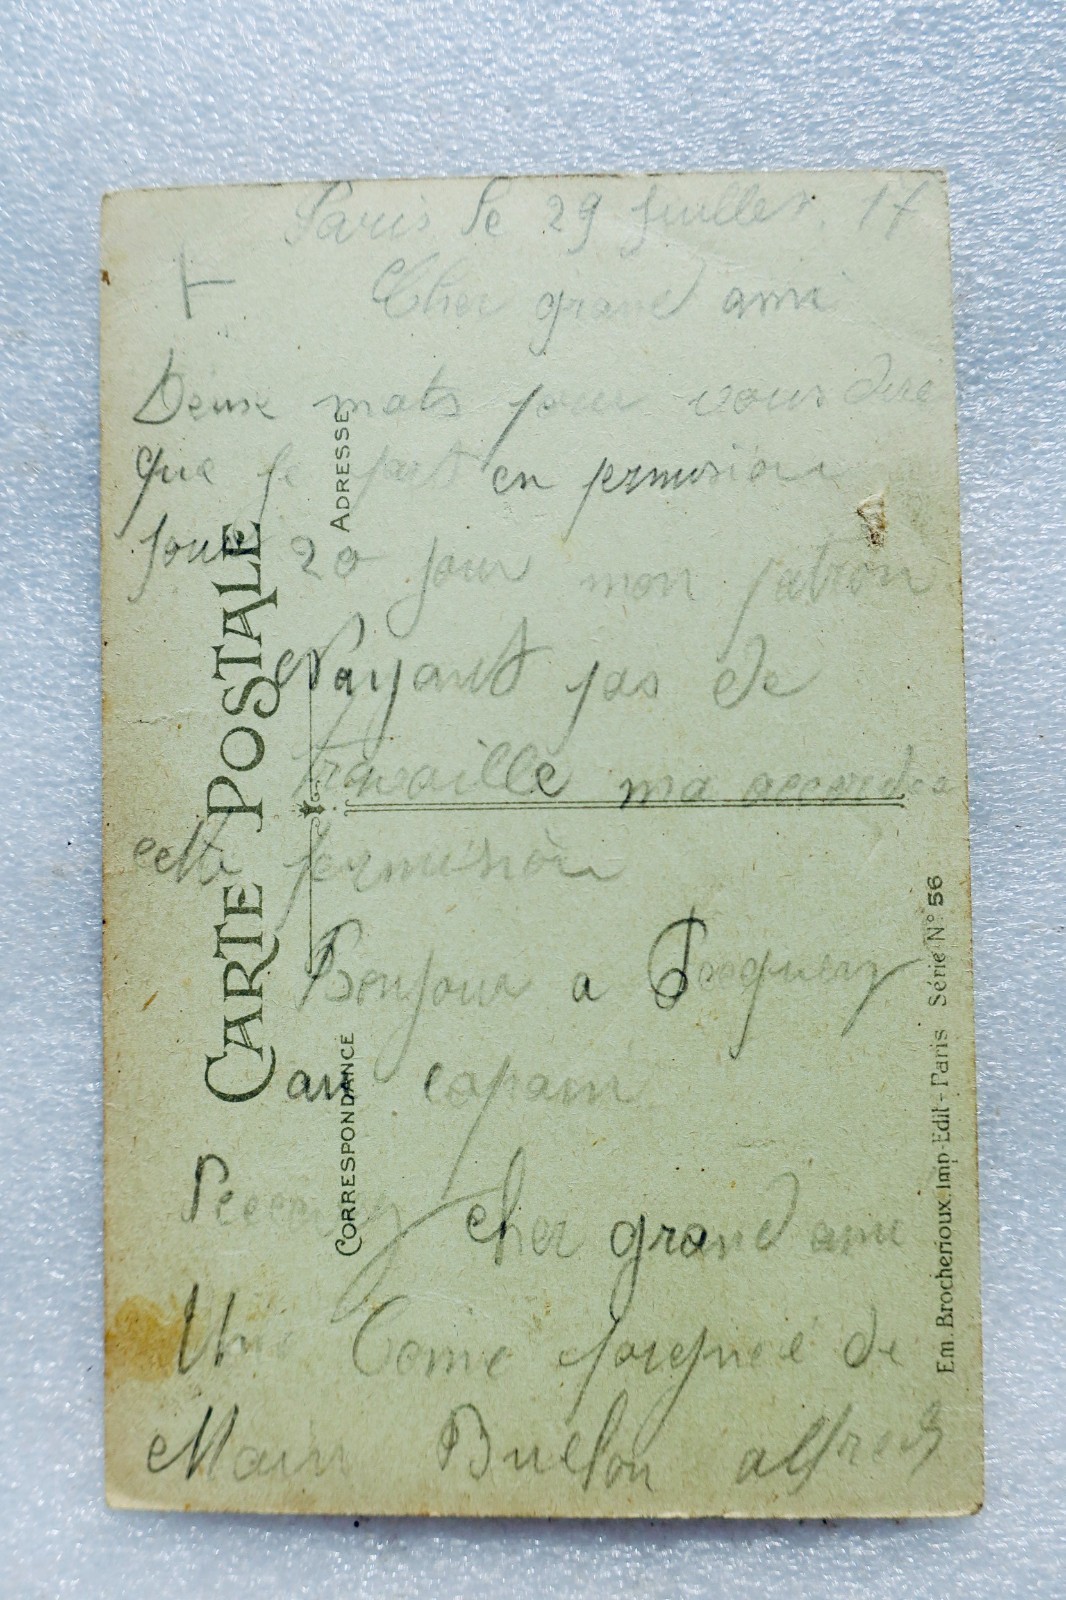 Paris le 29 juillet. 17
Cher grand ami
Deux mots pour vous dire
que je part en permision
pour 20 jour mon patron
N'ayant pas de
travaille ma accordee
cette permision
Bonjour a
au copain
cher grand ami
Une bonne poignee de
Main Bullou alfred
CARTE POSTALE
CORRESPONDANCE
ADRESSE
Em. Brocherioux. Imp-Edit-Paris Série N° 56